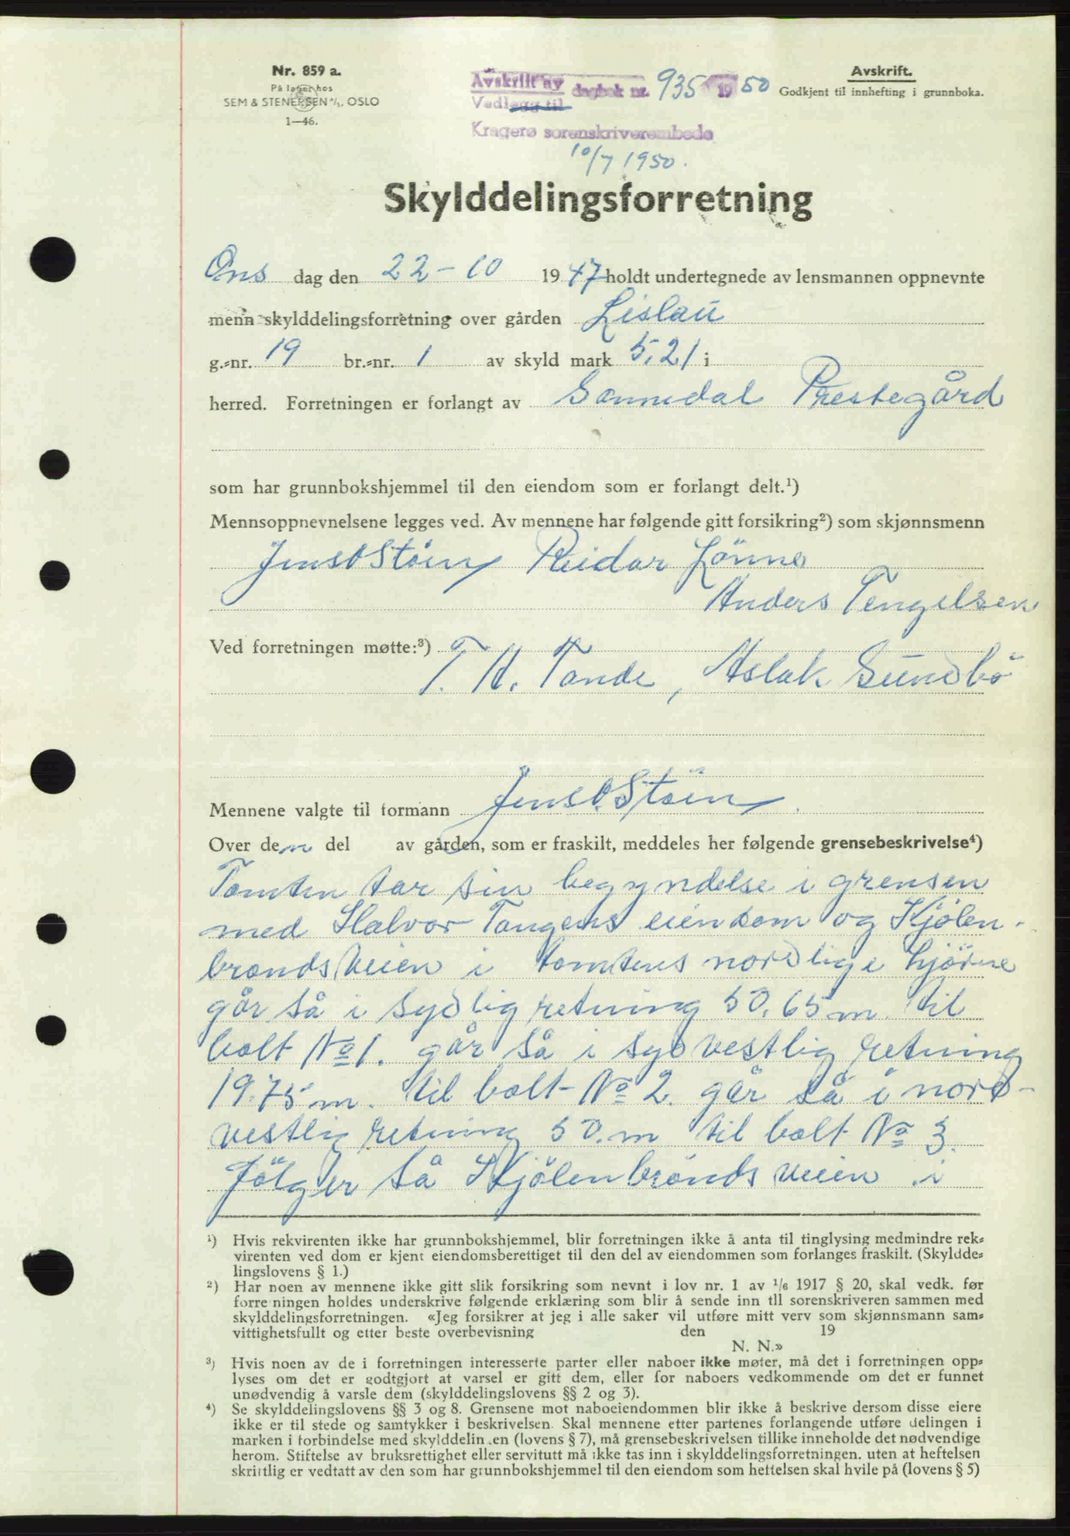 Nr. 859 a.
På lager hos
SEM & STENERSEN A/S, OSLO
1—46.
Avskrift av dagbok nr. 935 1950
Vedlegg til
Kragerø sorenskriverembede
10/7 1950.
Avskrift.
Godkjent til innhefting i grunnboka.
Skylddelingsforretning
Ons dag den 22-10 1947 holdt undertegnede av lensmannen oppnevnte
menn skylddelingsforretning over gården Lislau
g.-nr. 19 br.-nr. 1 av skyld mark 5,21 i
herred. Forretningen er forlangt av Sannidal Prestegård
som har grunnbokshjemmel til den eiendom som er forlangt delt.¹)
Mennsoppnevnelsene legges ved. Av mennene har følgende gitt forsikring²) som skjønnsmenn
Jens O Støin Reidar Lønne
Anders Tengelsen
Ved forretningen møtte:³)
T. H. Tande, Aslak Sundbö
Mennene valgte til formann Jens O. Støin.
Over den del av gården, som er fraskilt, meddeles her følgende grensebeskrivelse⁴)
Tomten tar sin begyndelse i grensen
med Halvor Tangens eiendom og Kjölen-
brøndsveien i tomtens nordlige hjörne
går så i sydlig retning 50,65 m. til
bolt No 1. går så i sydvestlig retning
19.75 m. til bolt No 2. går så i nord-
vestlig retning 50. m til bolt No 3.
Fölger så Kjölenbrøndsveien i
¹) Hvis rekvirenten ikke har grunnbokshjemmel, blir forretningen ikke å anta til tinglysing medmindre rek-
virenten ved dom er kjent eiendomsberettiget til den del av eiendommen som forlanges fraskilt. (Skyldde-
lingslovens § 1.)
²) Har noen av mennene ikke gitt slik forsikring som nevnt i lov nr. 1 av 1/6 1917 § 20, skal vedk. før
forretningen holdes underskrive følgende erklæring som blir å sende inn til sorenskriveren sammen med
skylddelingsforretningen. «Jeg forsikrer at jeg i alle saker vil utføre mitt verv som skjønnsmann sam-
vittighetsfullt og etter beste overbevisning den 19
N. N.»
³) Hvis noen av de i forretningen interesserte parter eller naboer ikke møter, må det i forretningen opp-
lyses om det er godtgjort at varsel er gitt dem, eller for naboers vedkommende om det er funnet
unødvendig å varsle dem (skylddelingslovens §§ 2 og 3).
⁴) Se skylddelingslovens §§ 3 og 8. Grensene mot naboeiendommen blir ikke å beskrive dersom disse eiere
ikke er til stede og samtykker i beskrivelsen. Skal mennene etter partenes forlangende utføre delingen i
marken i forbindelse med skylddelingen (lovens § 7), må grensebeskrivelsen tillike inneholde det nødvendige
herom. Stiftelse av bruksrettighet eller servitutt må ikke tas inn i skylddelingsforretningen, uten at heftelsen
skriftlig er vedtatt av den som har grunnbokshjemmel til den eiendom som heftelsen skal hvile på (lovens § 5)